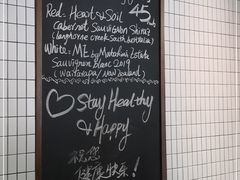 Red: Heart & Soil 45
Cabernet Sauvignon Shiraz
(Langhorne Creek South Australia)
White: ME by Matahiwi Estate
Sauvignon Blanc 2019
(Wairarapa / New Zealand)
Stay Healthy
& Happy
祝您
健康快樂!